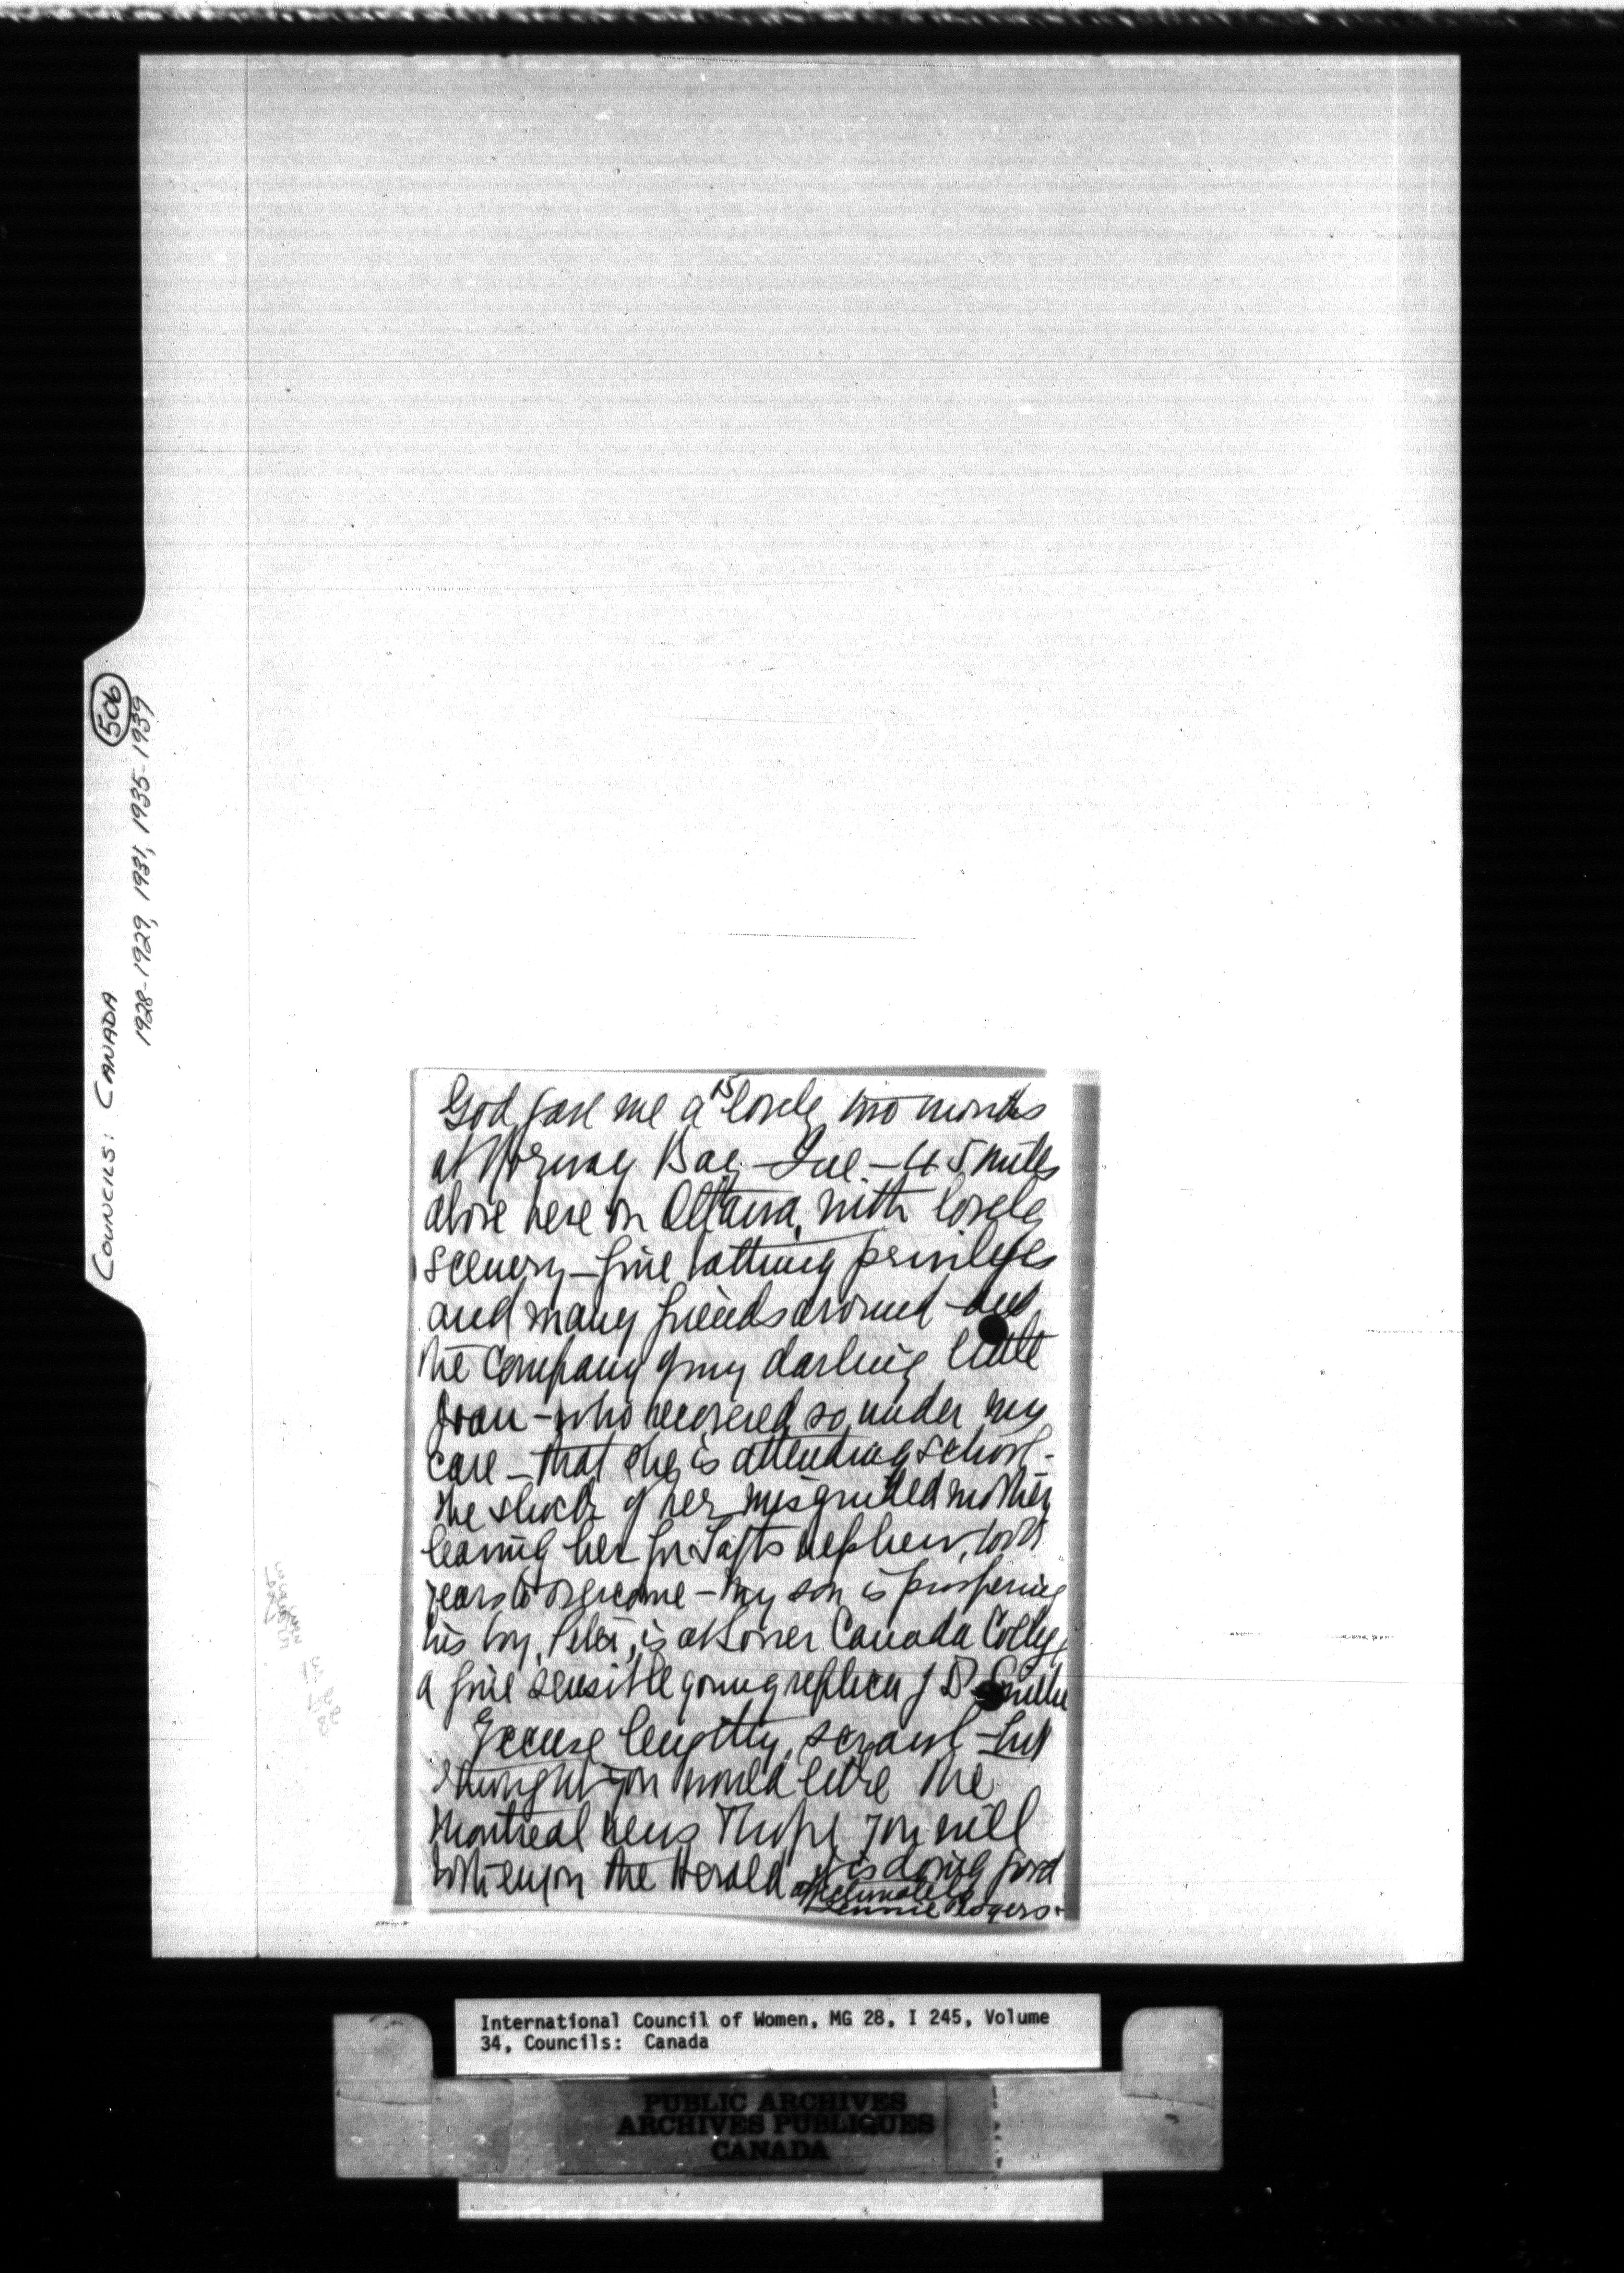 506
COUNCILS: CANADA
1928-1929, 1931, 1935-1939
15
God gave me a lovely two months
at Norway Bay - Que. - 45 miles
above here on Ottawa, with lovely
scenery - fine bathing privileges
and many friends around - and
the company of my darling little
Joan - who recovered so under my
care - that she is attending school -
the shock of her misguided mother
leaving her for Tafts nephew, took
years to overcome - My son is prospering
his boy, Peter, is at Lower Canada College
a fine sensible young replica of D
Excuse lengthy scrawl - but
thought you would like the
Montreal news I hope you will
both enjoy the Herald it is doing good
affectionately
Jennie Rogers.
International Council of Women, MG 28, I 245, Volume
34, Councils: Canada
PUBLIC ARCHIVES
ARCHIVES PUBLIQUES
CANADA